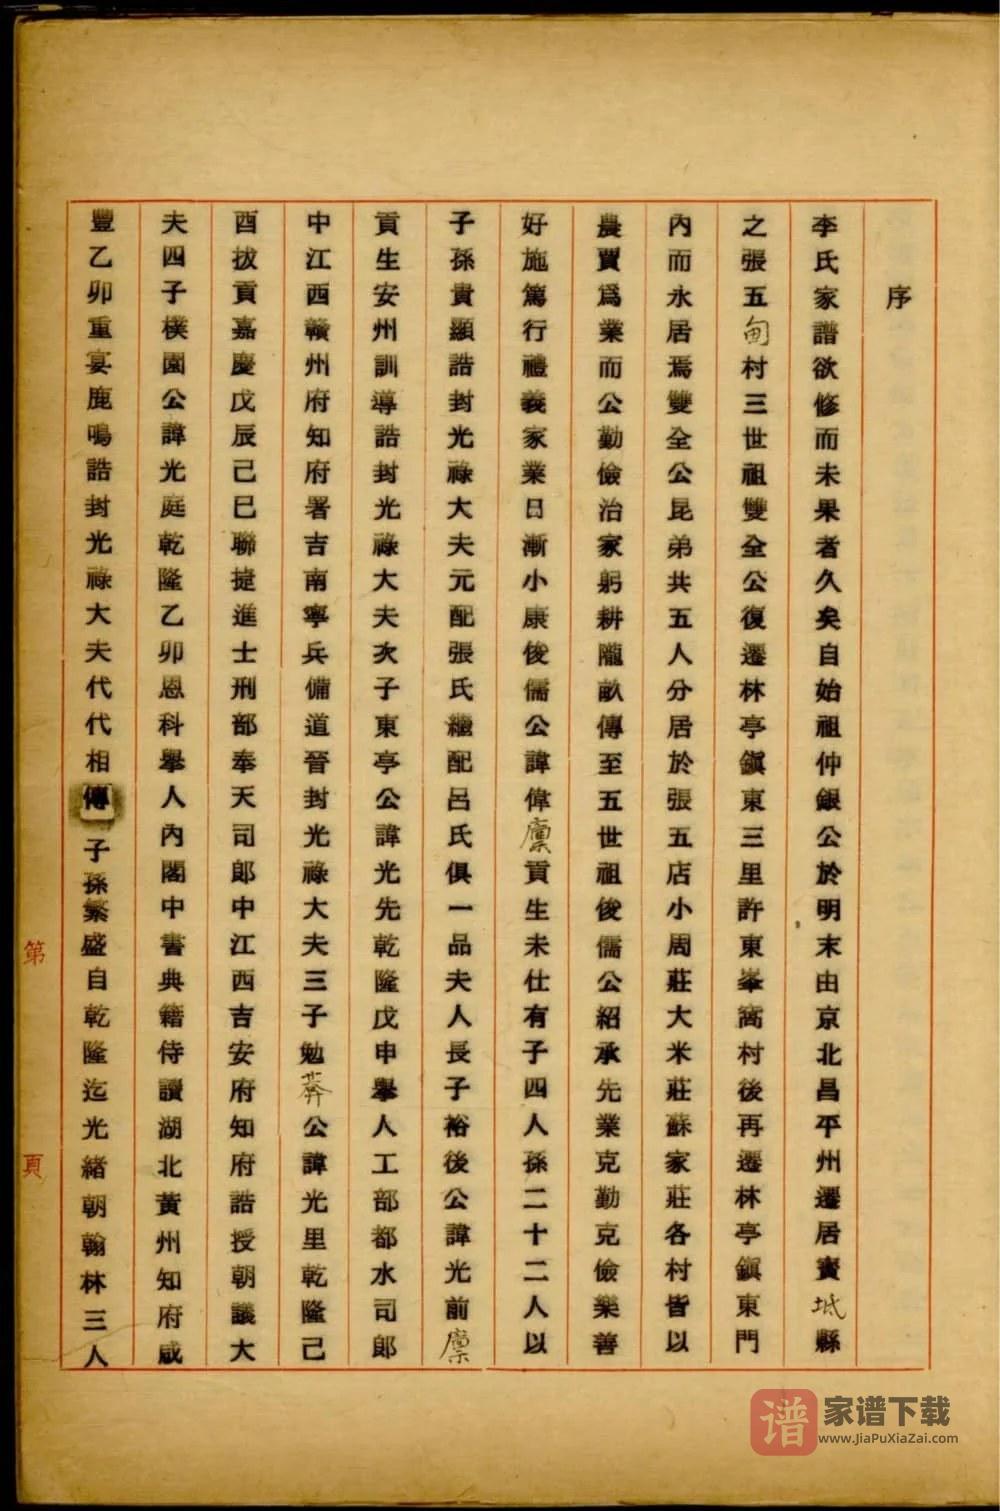 序
李氏家譜欲修而未果者久矣自始祖仲銀公於明末由京北昌平州遷居寶坻縣
之張五甸村三世祖雙全公復遷林亭鎭東三里許東峯窩村後再遷林亭鎭東門
內而永居焉雙全公昆弟共五人分居於張五店小周莊大米莊蘇家莊各村皆以
農賈爲業而公勤儉治家躬耕隴畝傳至五世祖俊儒公紹承先業克勤克儉樂善
好施篤行禮義家業日漸小康俊儒公諱偉廩貢生未仕有子四人孫二十二人以
子孫貴顯誥封光祿大夫元配張氏繼配呂氏俱一品夫人長子裕後公諱光前廩
貢生安州訓導誥封光祿大夫次子東亭公諱光先乾隆戊申舉人工部都水司郎
中江西贛州府知府署吉南寧兵備道晉封光祿大夫三子勉莽公諱光里乾隆己
酉拔貢嘉慶戊辰己巳聯捷進士刑部奉天司郎中江西吉安府知府誥授朝議大
夫四子樸園公諱光庭乾隆乙卯恩科舉人內閣中書典籍侍讀湖北黃州知府咸
豐乙卯重宴鹿鳴誥封光祿大夫代代相傳子孫繁盛自乾隆迄光緒朝翰林三人
第
頁
谱
家谱下载
www.JiaPuXiaZai.com